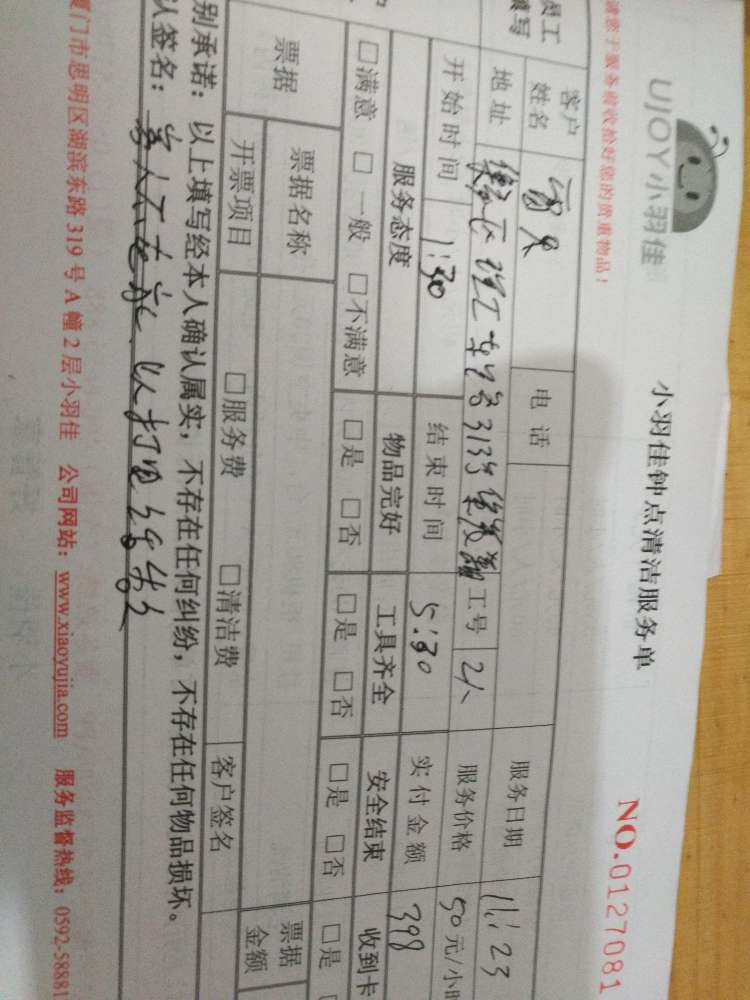 UJOY小羽佳
小羽佳钟点清洁服务单
NO.0127081
满意于服务前收拾好您的贵重物品!
员工
填写
客户
姓名
电话
服务日期 11:23
地址 工号 2人 服务价格 50元/小时
开始时间 1:30 结束时间 5:30 实付金额 398
服务态度 物品完好 工具齐全 安全结束 收到卡
□满意 □一般 □不满意 □是 □否 □是 □否 □是 □否 □是
票据 票据名称 □服务费 □清洁费 客户签名 票据
金额
开票项目
别承诺:以上填写经本人确认属实,不存在任何纠纷,不存在任何物品损坏。
认签名:
厦门市思明区湖滨东路319号A幢2层小羽佳 公司网站:www.xiaoyujia.com 服务监督热线:0592-58881